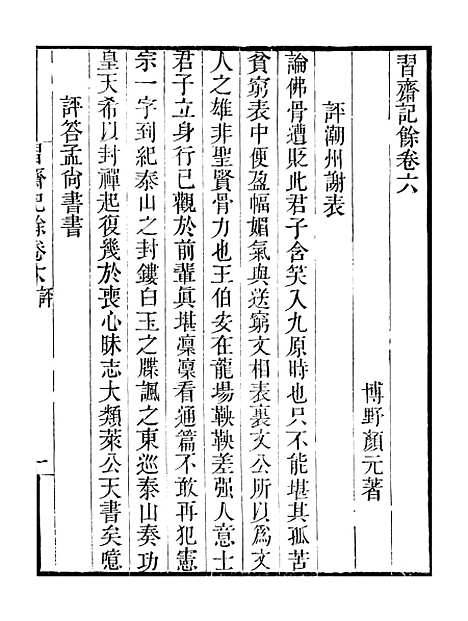 習齋記餘卷六
博野顏元著
評潮州謝表
論佛骨遭貶此君子含笑入九原時也只不能堪其孤苦
貧窮表中便盈幅媚氣與送窮文相表裏文公所以為文
人之雄非聖賢骨力也王伯安在龍場鞅鞅差强人意士
君子立身行已觀於前輩眞堪凜凜看通篇不敢再犯憲
宗一字到紀泰山之封鏤白玉之牒諷之東巡泰山奏功
皇天希以封禪起復幾於喪心昧志大類萊公天書矣噫
評答孟尙書書
習齋記餘卷六評
一